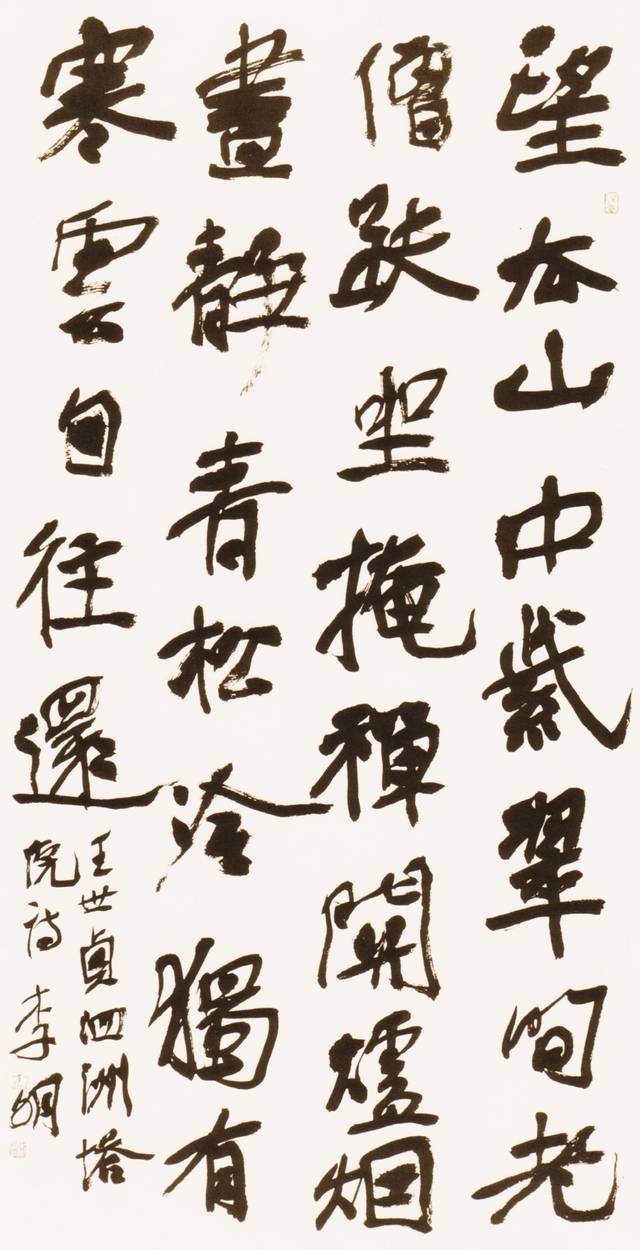 望去山中紫翠間老
僧趺坐掩禪關爐烟
晝靜青松冷獨有
寒雲自往還
王世貞泗洲塔
院詩 李明